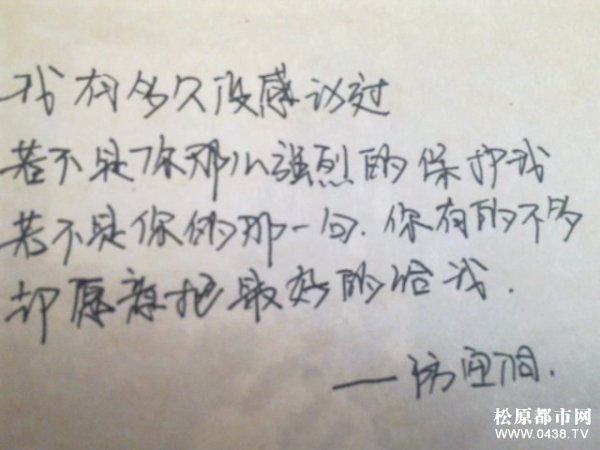 我有多久没感动过
若不是你那么强烈的保护我
若不是你的那一句.你有的不多
却愿意把最好的给我.
松原都市网
WWW.0438.TV